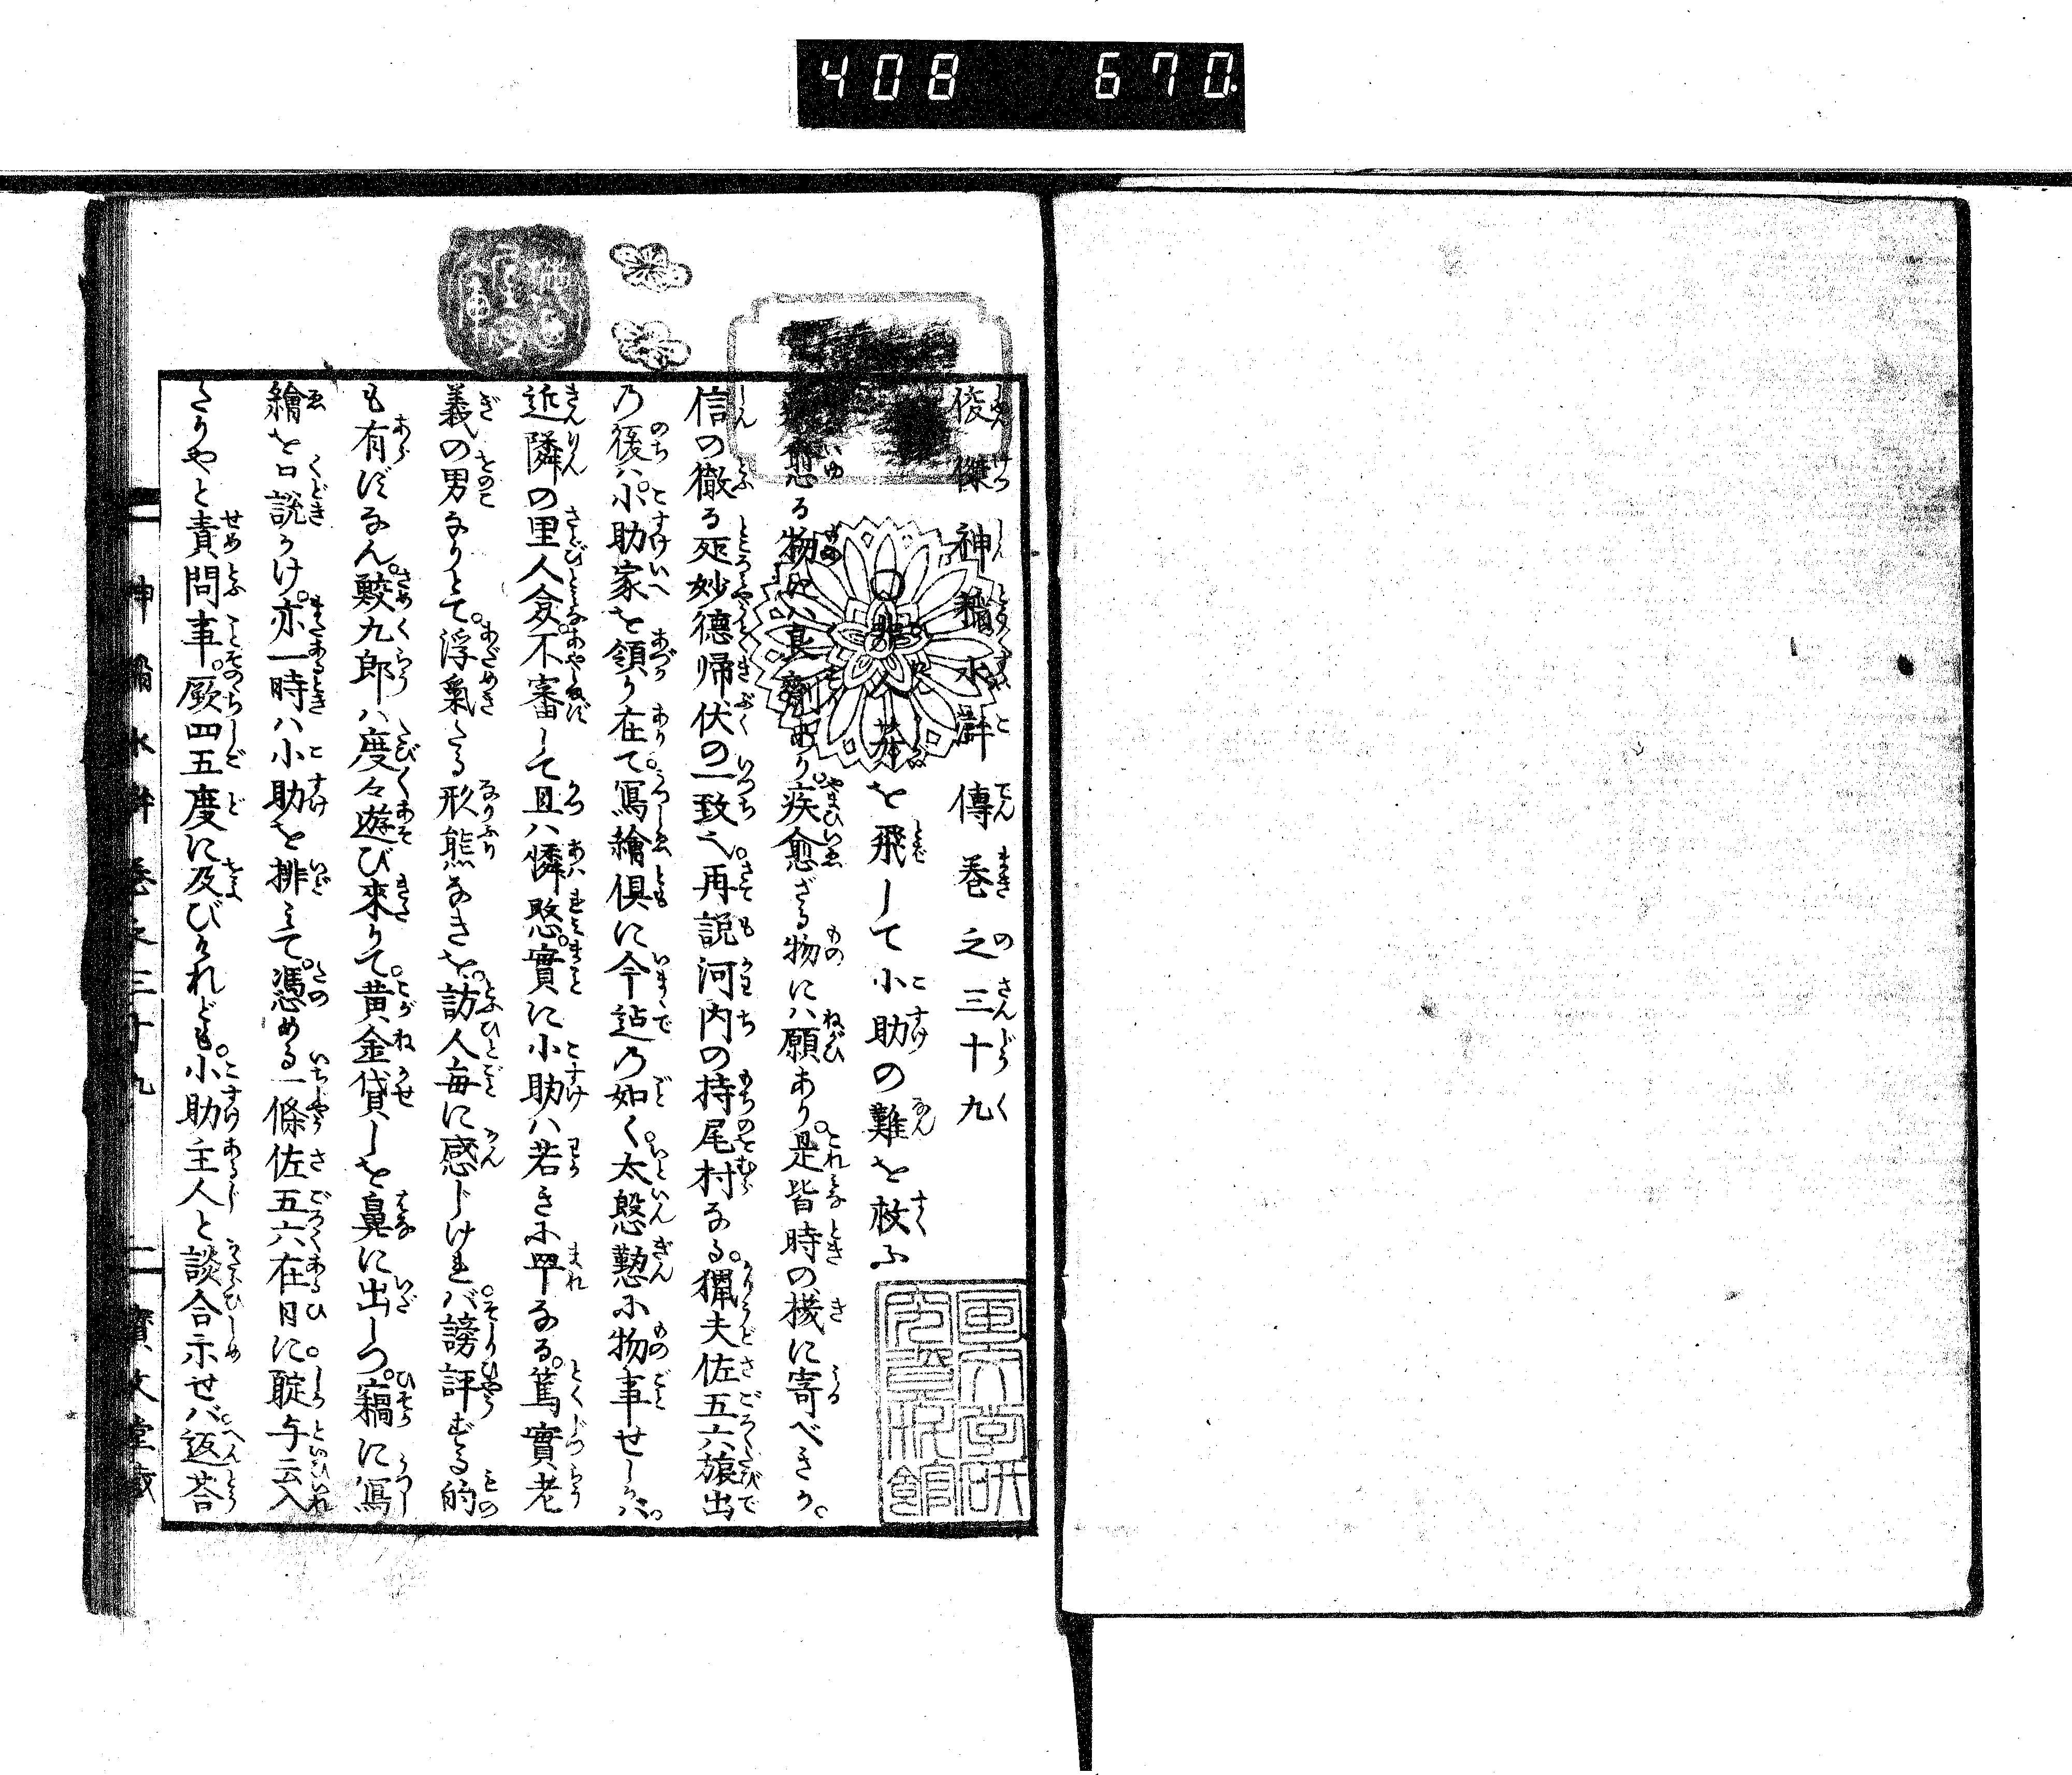 408 670
俊傑神稲水滸傳巻之三十九
を飛して小助の難を救ふ
愈る物にハ良剤あり。疾愈ざる物にハ願あり。是皆時の機に寄べきか。
信の徹る所妙徳帰伏の一致也。再説河内の持尾村なる。猟夫佐五六旅出
乃後ハ。小助家を領り在て。写繪倶に今迠乃如く。太慇懃に物事せしかバ。
近隣の里人僉。不審して且ハ憐愍。實に小助ハ若きに罕なる。篤實老
義の男なりとて。浮氣たる形態なきを。訪人毎に感じけれバ。謗評ずる的
も有ずなん。鮫九郎ハ度々遊び來りて。黄金貸しを鼻に出しつ。竊に写
繪を口説かけ。亦一時ハ小助を排みて。憑める一條佐五六在日に。聢与云入
たりやと責問事。厥四五度に及びけれども。小助主人と談合示せバ。返荅
神稲水滸 巻之三十九 一 寶文堂蔵